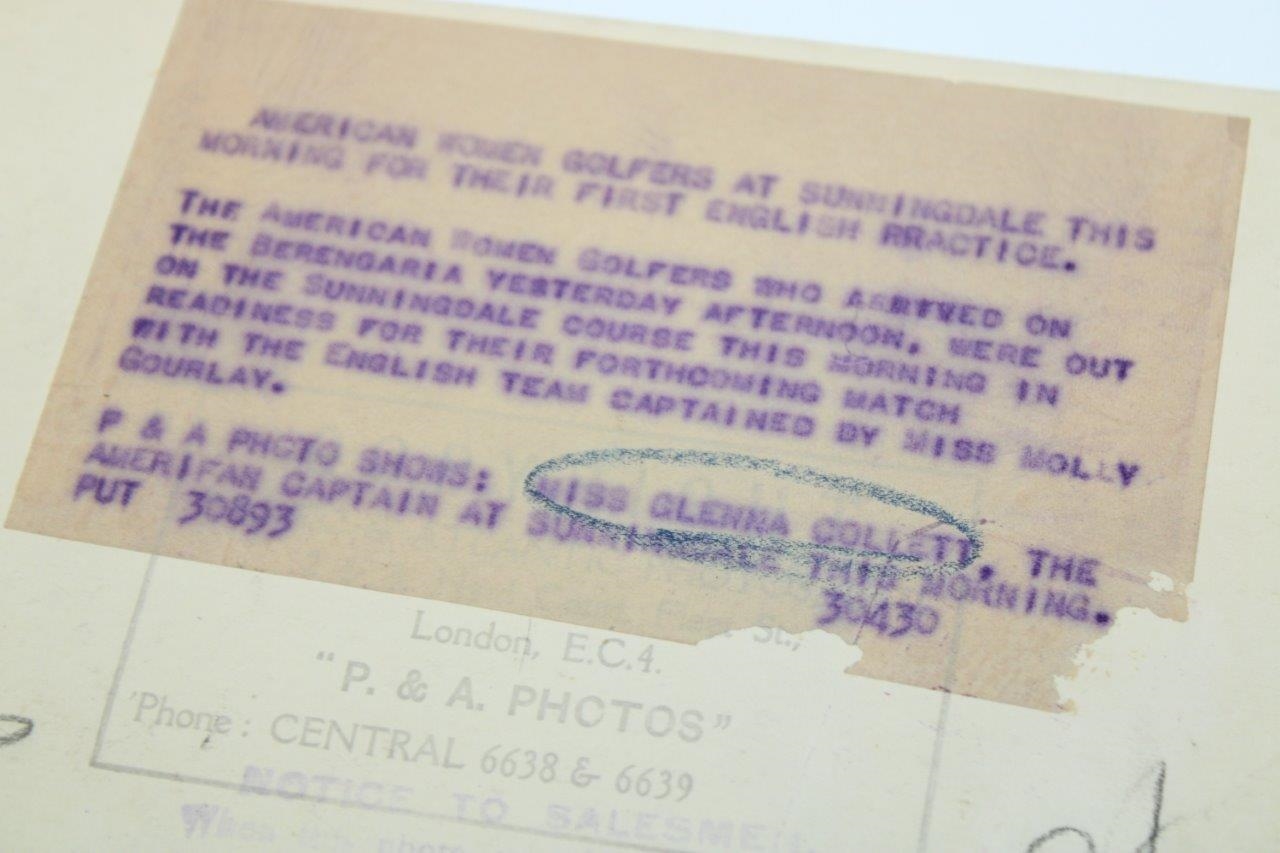 AMERICAN WOMEN GOLFERS AT SUNNINGDALE THIS
MORNING FOR THEIR FIRST ENGLISH PRACTICE.
THE AMERICAN WOMEN GOLFERS WHO ARRIVED ON
THE BERENGARIA YESTERDAY AFTERNOON, WERE OUT
ON THE SUNNINGDALE COURSE THIS MORNING IN
READINESS FOR THEIR FORTHCOMING MATCH
WITH THE ENGLISH TEAM CAPTAINED BY MISS MOLLY
GOURLAY.
P & A PHOTO SHOWS: MISS GLENNA COLLETT, THE
AMERIFAN CAPTAIN AT SUNNINGDALE THIS MORNING.
PUT 30893 30430
St.,
London, E.C.4.
"P. & A. PHOTOS"
'Phone: CENTRAL 6638 & 6639
NOTICE TO SALESMEN.
When this photo